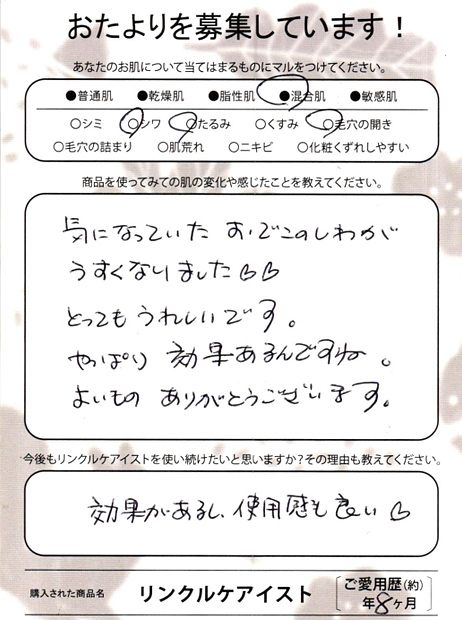 おたよりを募集しています！
あなたのお肌について当てはまるものにマルをつけてください。
●普通肌 ●乾燥肌 ●脂性肌 ●混合肌 ●敏感肌
○シミ ○シワ ○たるみ ○くすみ ○毛穴の開き
○毛穴の詰まり ○肌荒れ ○ニキビ ○化粧くずれしやすい
商品を使ってみての肌の変化や感じたことを教えてください。
気になっていた おでこのしわが
うすくなりました♡♡
とってもうれしいです。
やっぱり 効果あるんですね。
よいもの ありがとうございます。
今後もリンクルケアイストを使い続けたいと思いますか？その理由も教えてください。
効果があるし、使用感も良い♡
購入された商品名 リンクルケアイスト
ご愛用歴(約)
年8ヶ月